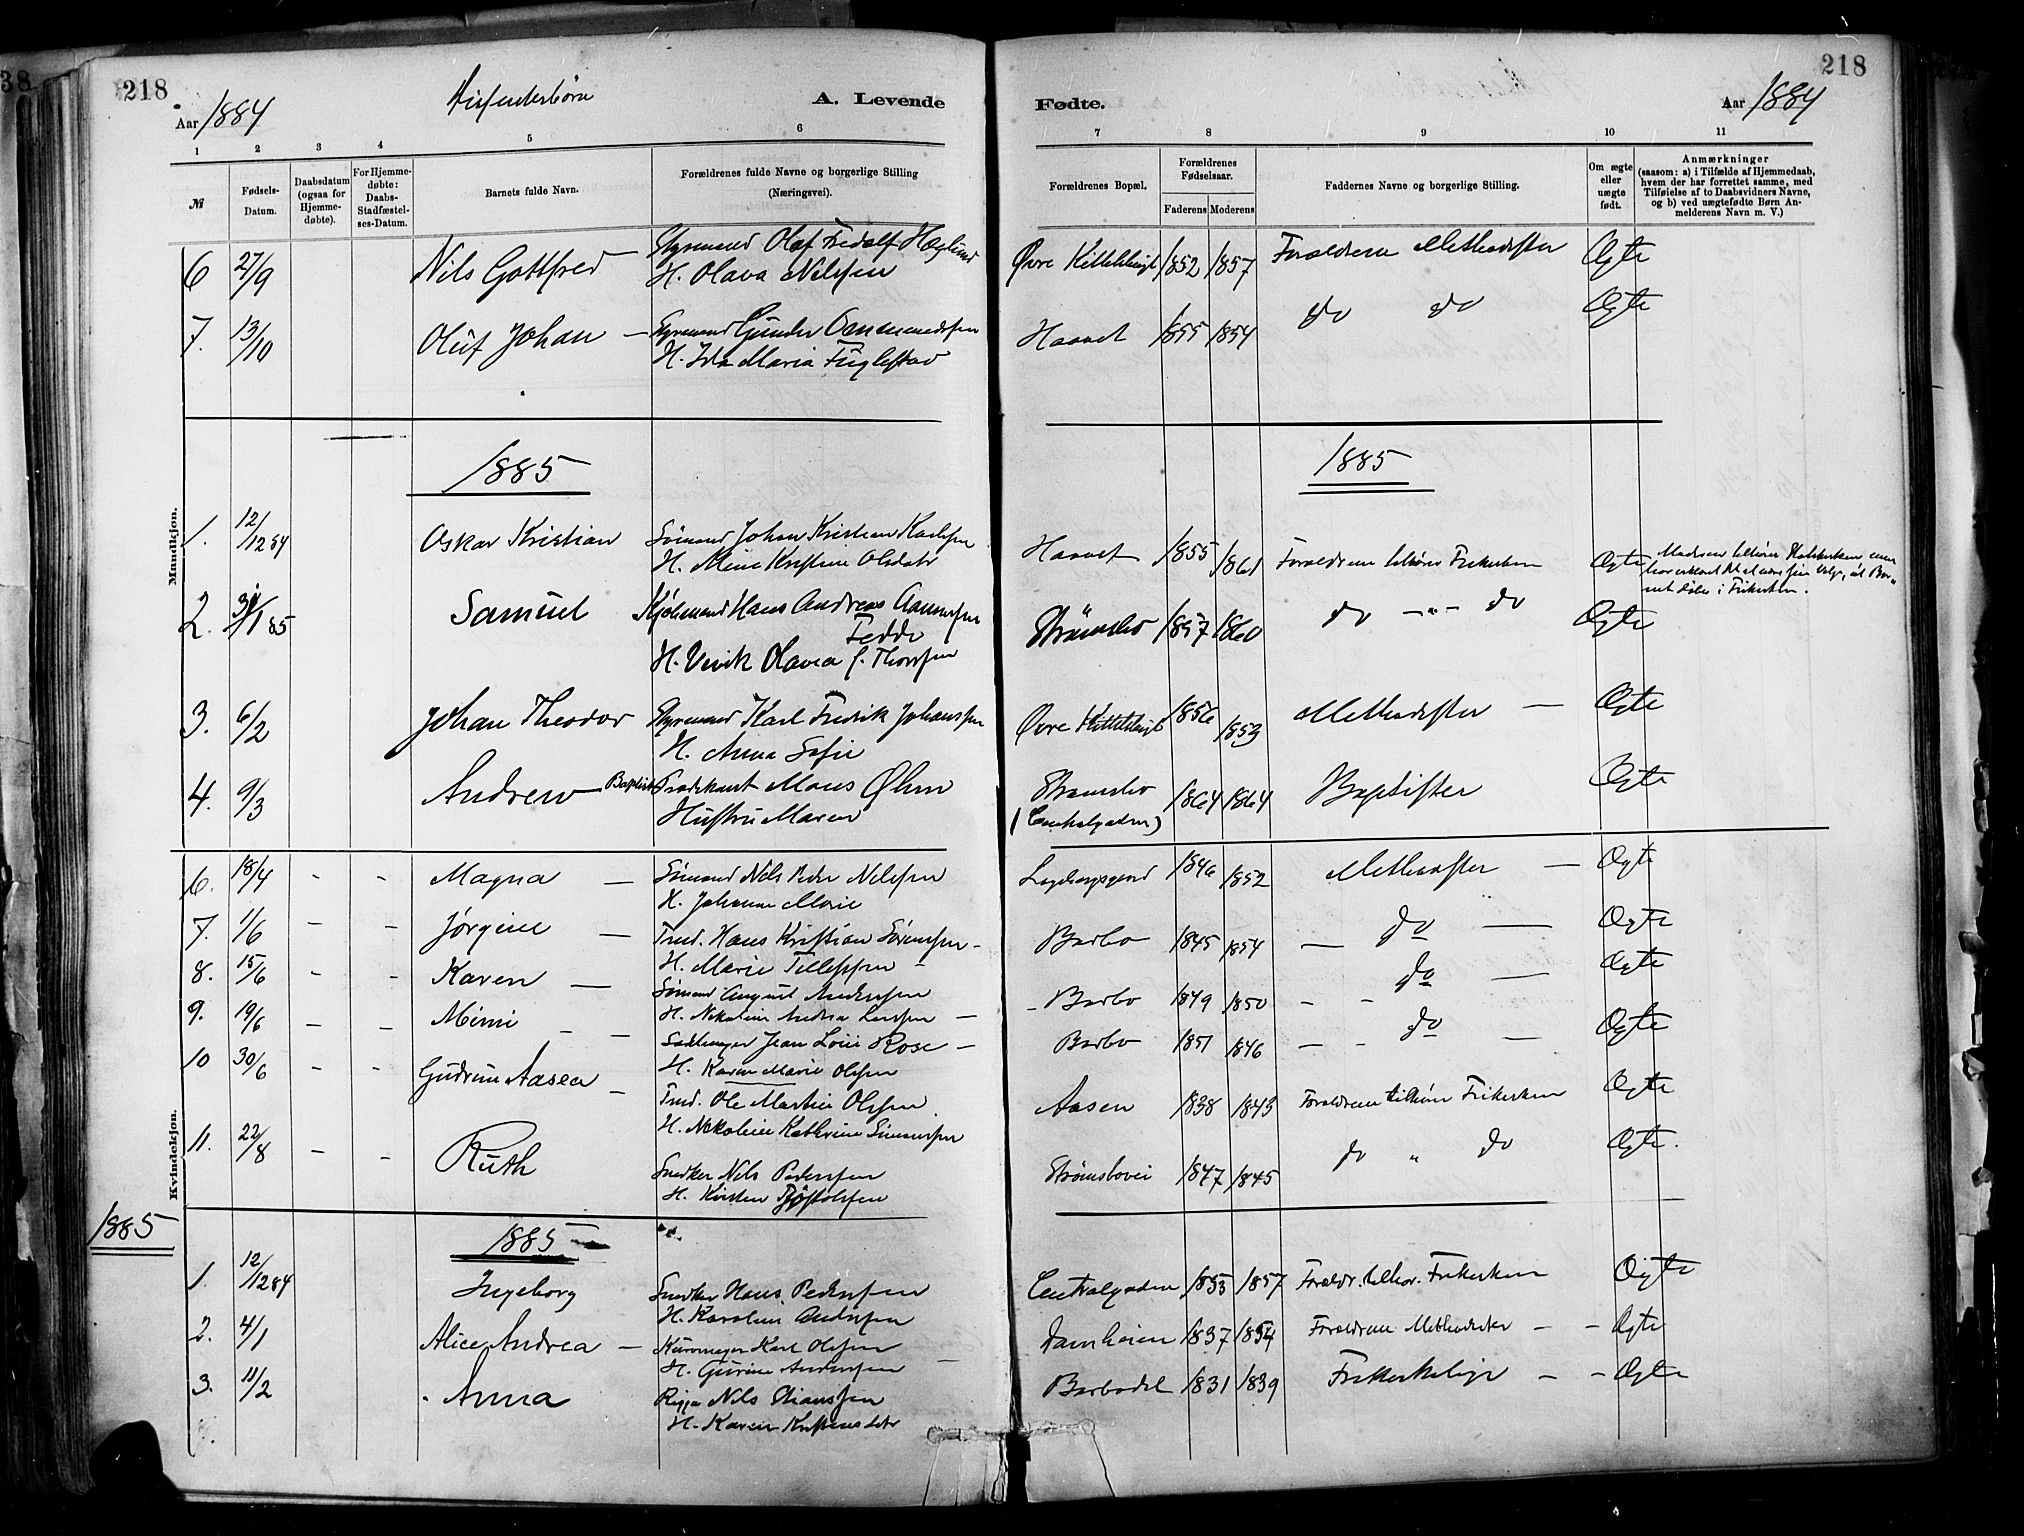 218
Aar 1884
Dissenterbørn
A. Levende
1 2 3 4 5 6
№
Fødsels-
Datum.
Daabsdatum
(ogsaa for
Hjemme-
døbte).
For Hjemme-
døbte:
Daabs-
Stadfæstel-
ses-Datum.
Barnets fulde Navn.
Forældrenes fulde Navne og borgerlige Stilling
(Næringsvei).
6 27/9 Nils Gottfred — Styrmand Olaf Fredolf Høglund
H. Olava Nilssen
7. 13/10 Oluf Johan — Styrmand Gunder Aanundssen
H. Ida Maria Fuglestad
1885
Mandkjøn.
1. 12/12 84 Oskar Kristian Sømand Johan Kristian Karlsen
H. Mine Kristine Olsdatr
2. 31/1 85 Samuel Kjøbmand Hans Andreas Aanensen
Fedde
H. Olavia f. Thorsen
3. 6/2 Johan Theodor Styrmand Karl Fredrik Johanssen
H. Anna Sofie
4. 9/3 Andrew Baptist Prædikant Mons Øhrn
Hustru Maren
Kvindekjøn.
6. 18/4 - - Magna — Sømand Nils Peder Nilssen
H. Johanne Marie
7. 1/6 - - Jørgine — Tmd. Hans Kristian Sørenssen -
H. Marie Tellefsen -
8. 15/6 - - Karen — Sømand August Anderssen
H. Nikoline Andrea Larssen —
9. 19/6 - - Mimi - - Sadlmager Jean Loui Rose -
H. Karen Marie Olssen
10 30/6 - - Gudrun Aasea - Tmd. Ole Martin Olssen
H. Nikoline Kathrine Simonssen
11. 22/8 - - Ruth Snedker Nils Pederssen
H. Kirsten Tjøstolfsen
1885
1885
1. 12/12 84 Ingeborg Snedker Hans Pederssen
H. Karoline Anderssen
2. 4/1 Alice Andrea — Kurvmager Karl Olssen
H. Gurine Anderssen —
3. 11/2 Anna Rigger Nils Hanssen
H. Karen Kristensdatr
218
Fødte.
Aar 1884
7 8 9 10 11
Forældrenes Bopæl.
Forældrenes
Fødselsaar.
Faderens Moderens
Faddernes Navne og borgerlige Stilling.
Om ægte
eller
uægte
født.
Anmærkninger
(saasom: a) i Tilfælde af Hjemmedaab,
hvem der har forrettet samme, med
Tilføielse af to Daabsvidners Navne,
og b) ved uægtefødte Børn An-
melderens Navn m. V.)
Øvre Kittelsbugt 1852 1857 Forældrene Methodister Ægte
Haavet 1855 1854 do do Ægte
1885
Haavet 1855 1861 Forældrene tilhører Frikirken Ægte Moderen tilhører Statskirken men
har erklæret
net døbes i Frikirken.
Strømsbo 1857 1860 do -"- do Ægte
Øvre Kittelsbugt 1856 1853 Methodister — Ægte
Strømsbo 1864 1864 Baptister Ægte
(Centralgaden)
1846 1852 Methodister — Ægte
Barbo 1845 1854 — do — Ægte
- Barbo 1849 1850 - - do — Ægte
Barbo 1851 1846 - - do - Ægte
Aasen 1838 1843 Forældrene tilhører Frikirken Ægte
Strømsbovei 1847 1845 do " do Ægte.
Centralgaden 1853 1857 Forældr. tilhør. Frikirken Ægte
Damheien 1837 1854 Forældrene Methodister - - Ægte
Barbodal 1831 1839 Frikirkelige - - Ægte